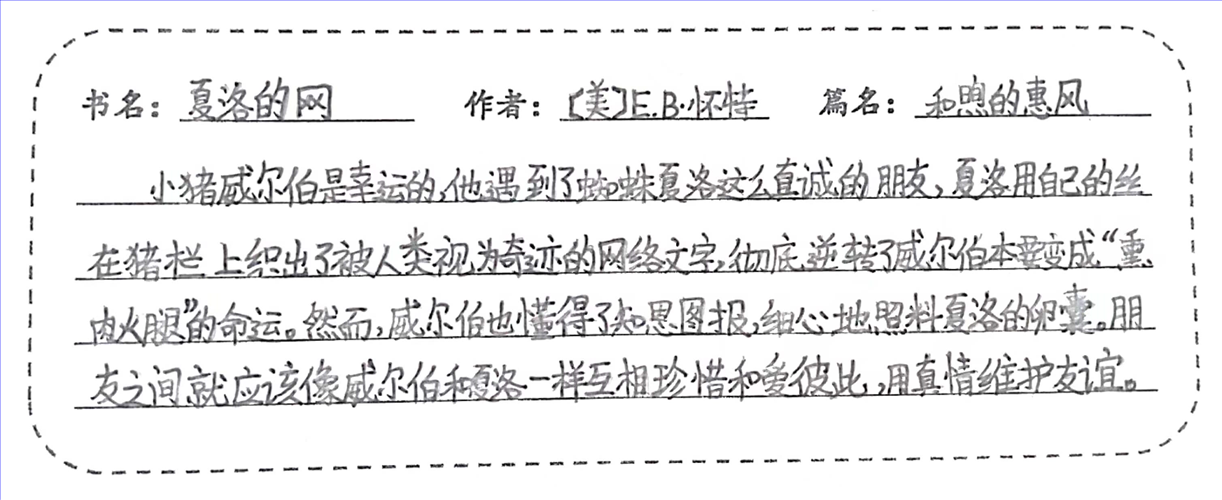 书名：夏洛的网 作者：[美]E.B.怀特 篇名：和煦的惠风
小猪威尔伯是幸运的，他遇到了蜘蛛夏洛这么真诚的朋友，夏洛用自己的丝
在猪栏上织出了被人类视为奇迹的网络文字，彻底逆转了威尔伯本要变成“熏
肉火腿”的命运。然而，威尔伯也懂得了知恩图报，细心地照料夏洛的卵囊。朋
友之间就应该像威尔伯和夏洛一样互相珍惜和爱彼此，用真情维护友谊。